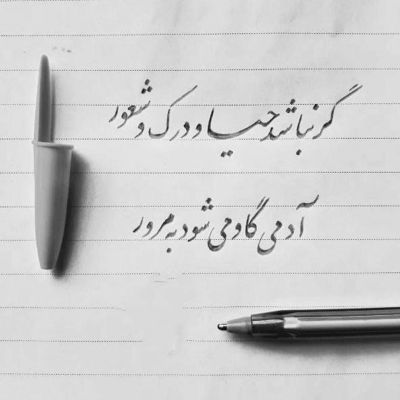 گر نباشد حیا و درک و شعور
آدمی گاو می شود به مرور